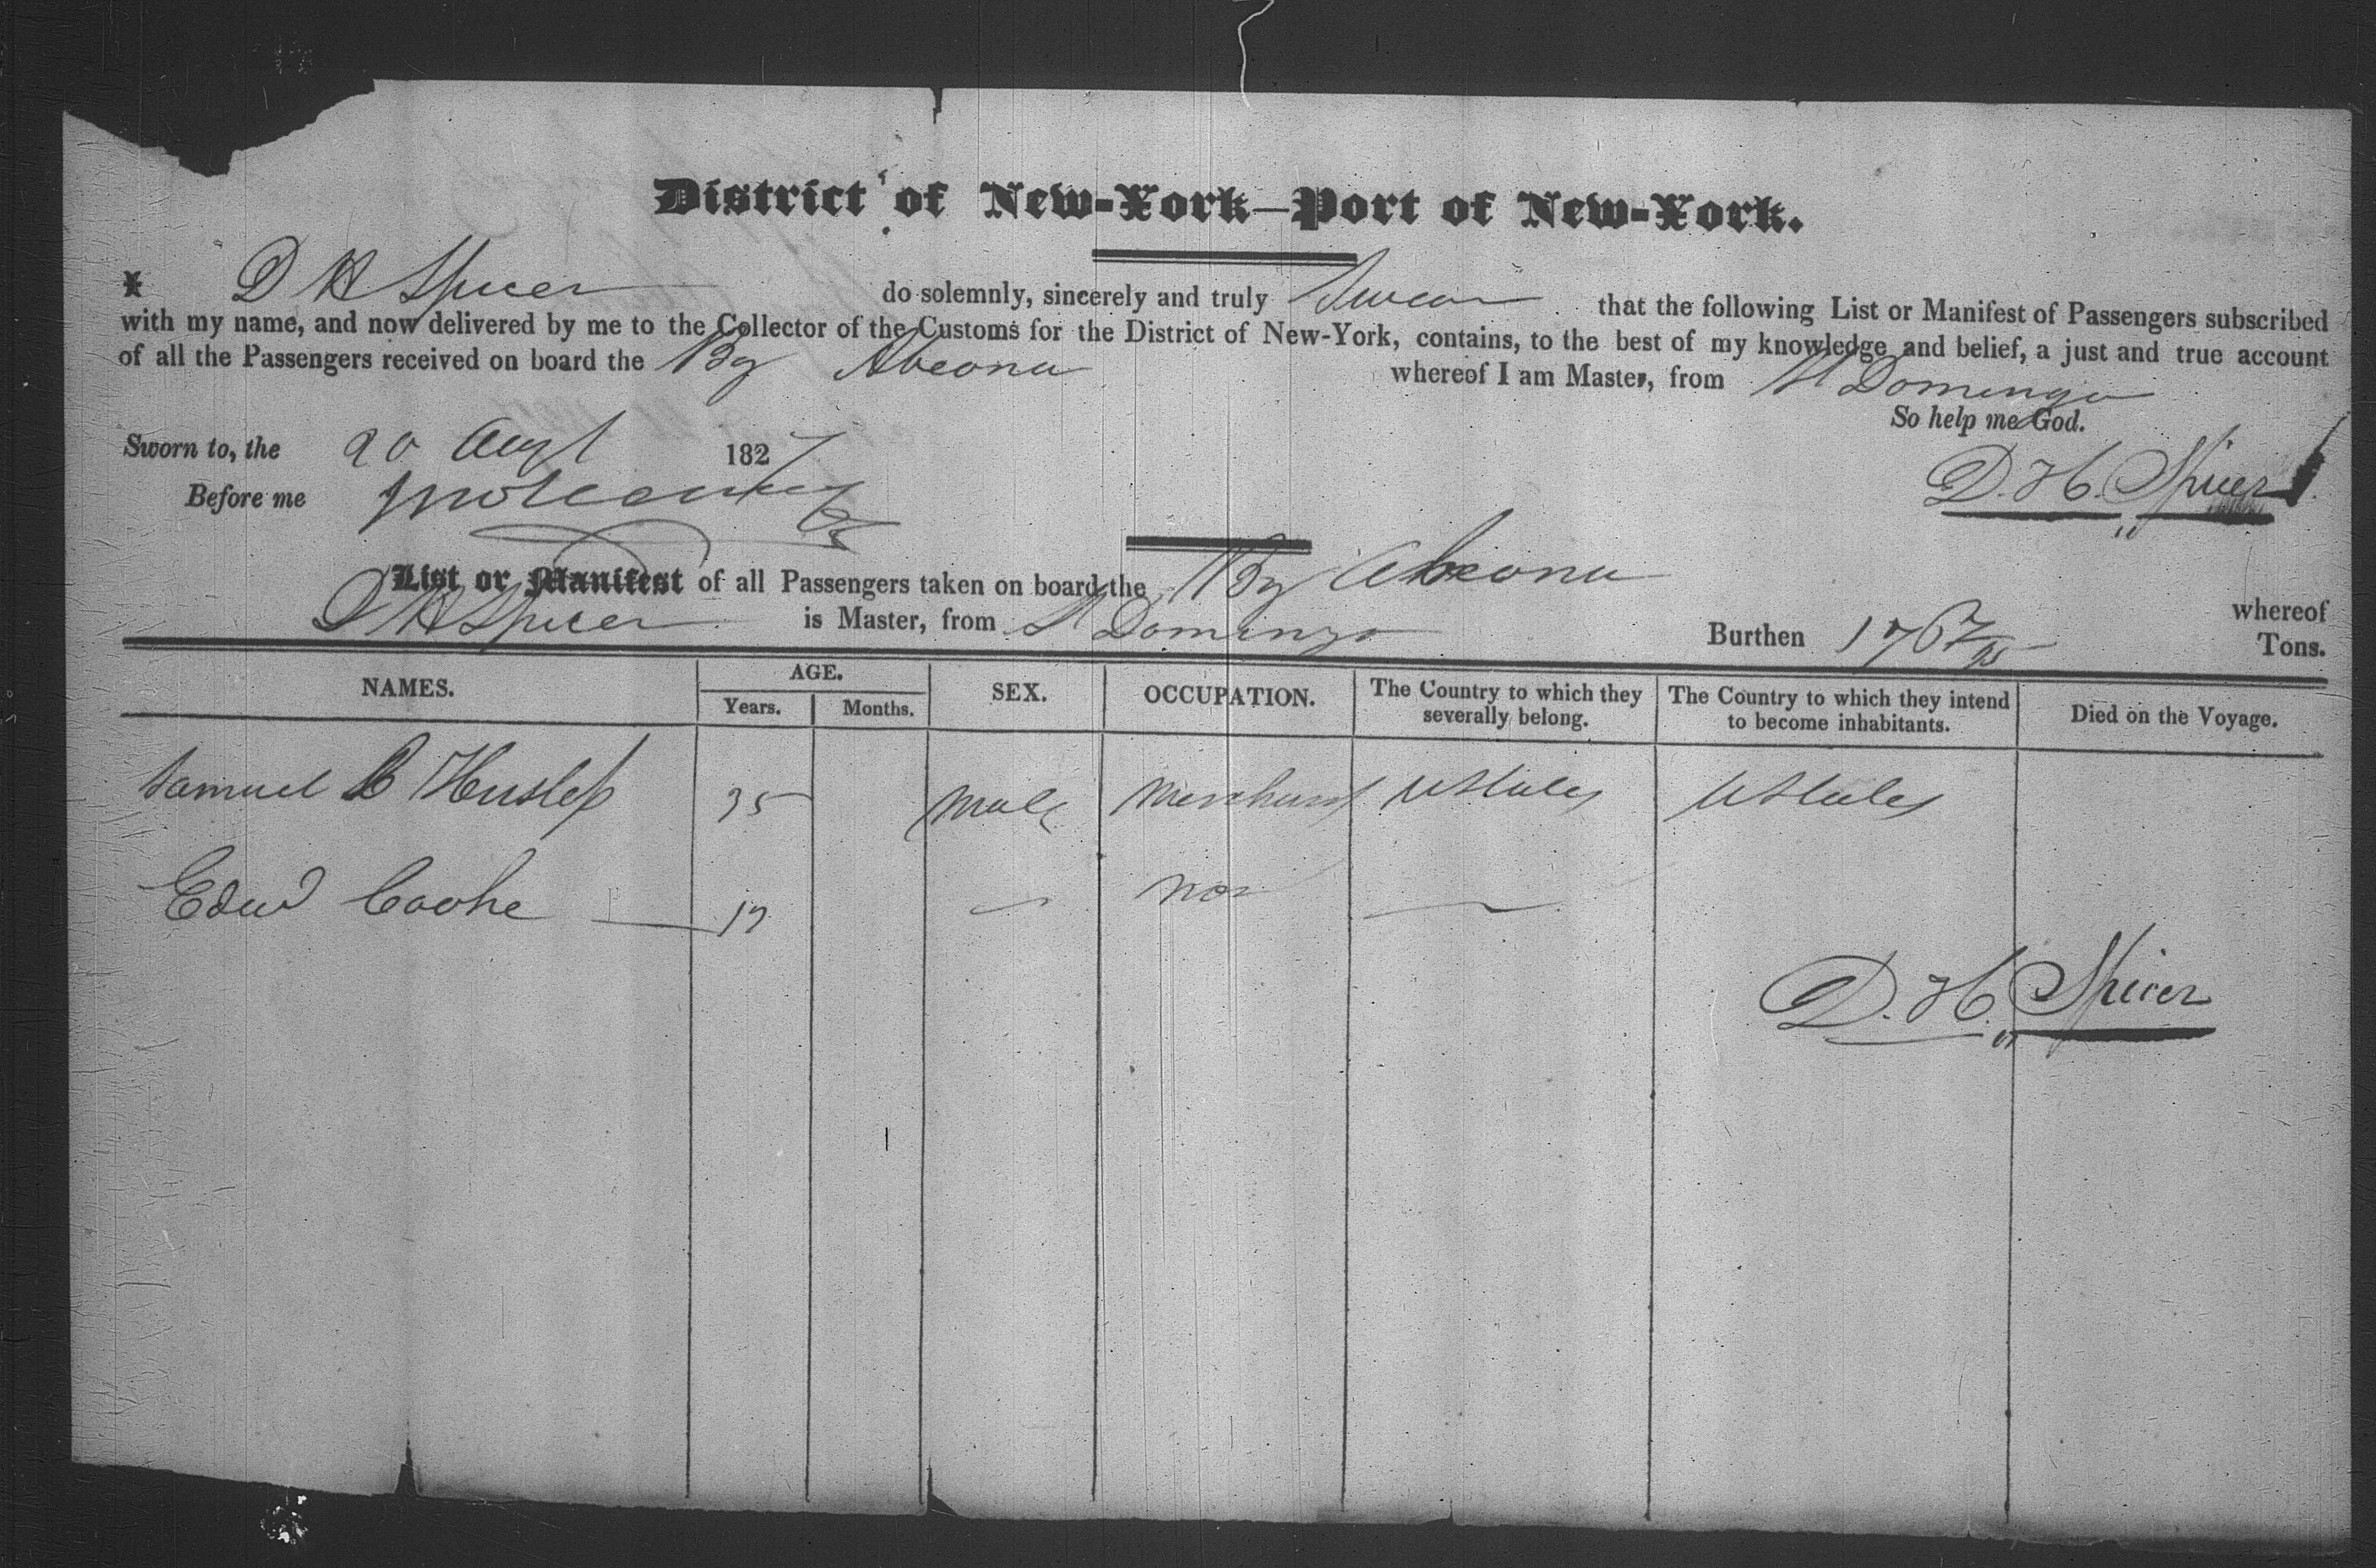 District of New-York—Port of New-York.
I D H Spicer do solemnly, sincerely and truly Swear that the following List or Manifest of Passengers subscribed
with my name, and now delivered by me to the Collector of the Customs for the District of New-York, contains, to the best of my knowledge and belief, a just and true account
of all the Passengers received on board the Bg Abeona whereof I am Master, from St Domingo
So help me God.
Sworn to, the 20 Augt 1827
D. H. Spicer
Before me
List or Manifest of all Passengers taken on board the Bg Abeona whereof
D H Spicer is Master, from St Domingo Burthen 176 Tons.
NAMES. AGE. SEX. OCCUPATION. The Country to which they severally belong. The Country to which they intend to become inhabitants. Died on the Voyage.
Years. Months.
Samuel 35 Male Merchant U States U States
Edwd Cooke 17
D. H. Spicer